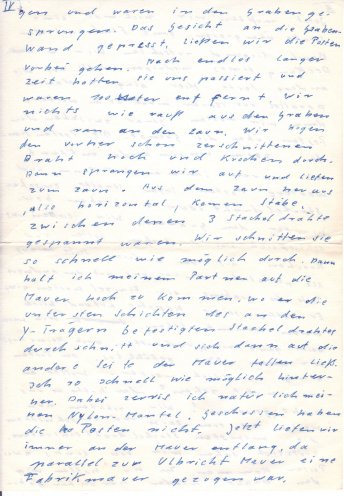 IV
gen und waren in den Graben ge-
sprungen. Das Gesicht an die Graben-
wand gepresst, ließen wir die Posten
vorbei gehen. Nach endlos langer
Zeit hatten sie uns passiert und
waren 100 Meter entfernt. Wir
nichts wie rauß aus den Graben
und ran an den Zaun. Wir bogen
den vorher schon zerschnittenen
Draht hoch und krochen durch.
Dann sprangen wir auf und liefen
zum Zaun. Aus dem Zaun heraus
also horizontal, kamen Stäbe,
zwischen denen 3 Stacheldrähte
gespannt waren. Wir schnitten sie
so schnell wie möglich durch. Dann
half ich meinem Partner auf die
Mauer hoch zu kommen, wo er die
untersten Schichten des an den
Y-Trägern befestigten Stacheldrahtes
durchschnitt und sich dann auf die
andere Seite der Mauer fallen ließ.
Ich so schnell wie möglich hinter-
her. Dabei zerriß ich natürlich mei-
nen Nylon-Mantel. Geschossen haben
die Posten nicht. Jetzt liefen wir
immer an der Mauer entlang, da
parallel zur Ulbricht Mauer eine
Fabrikmauer gezogen war.